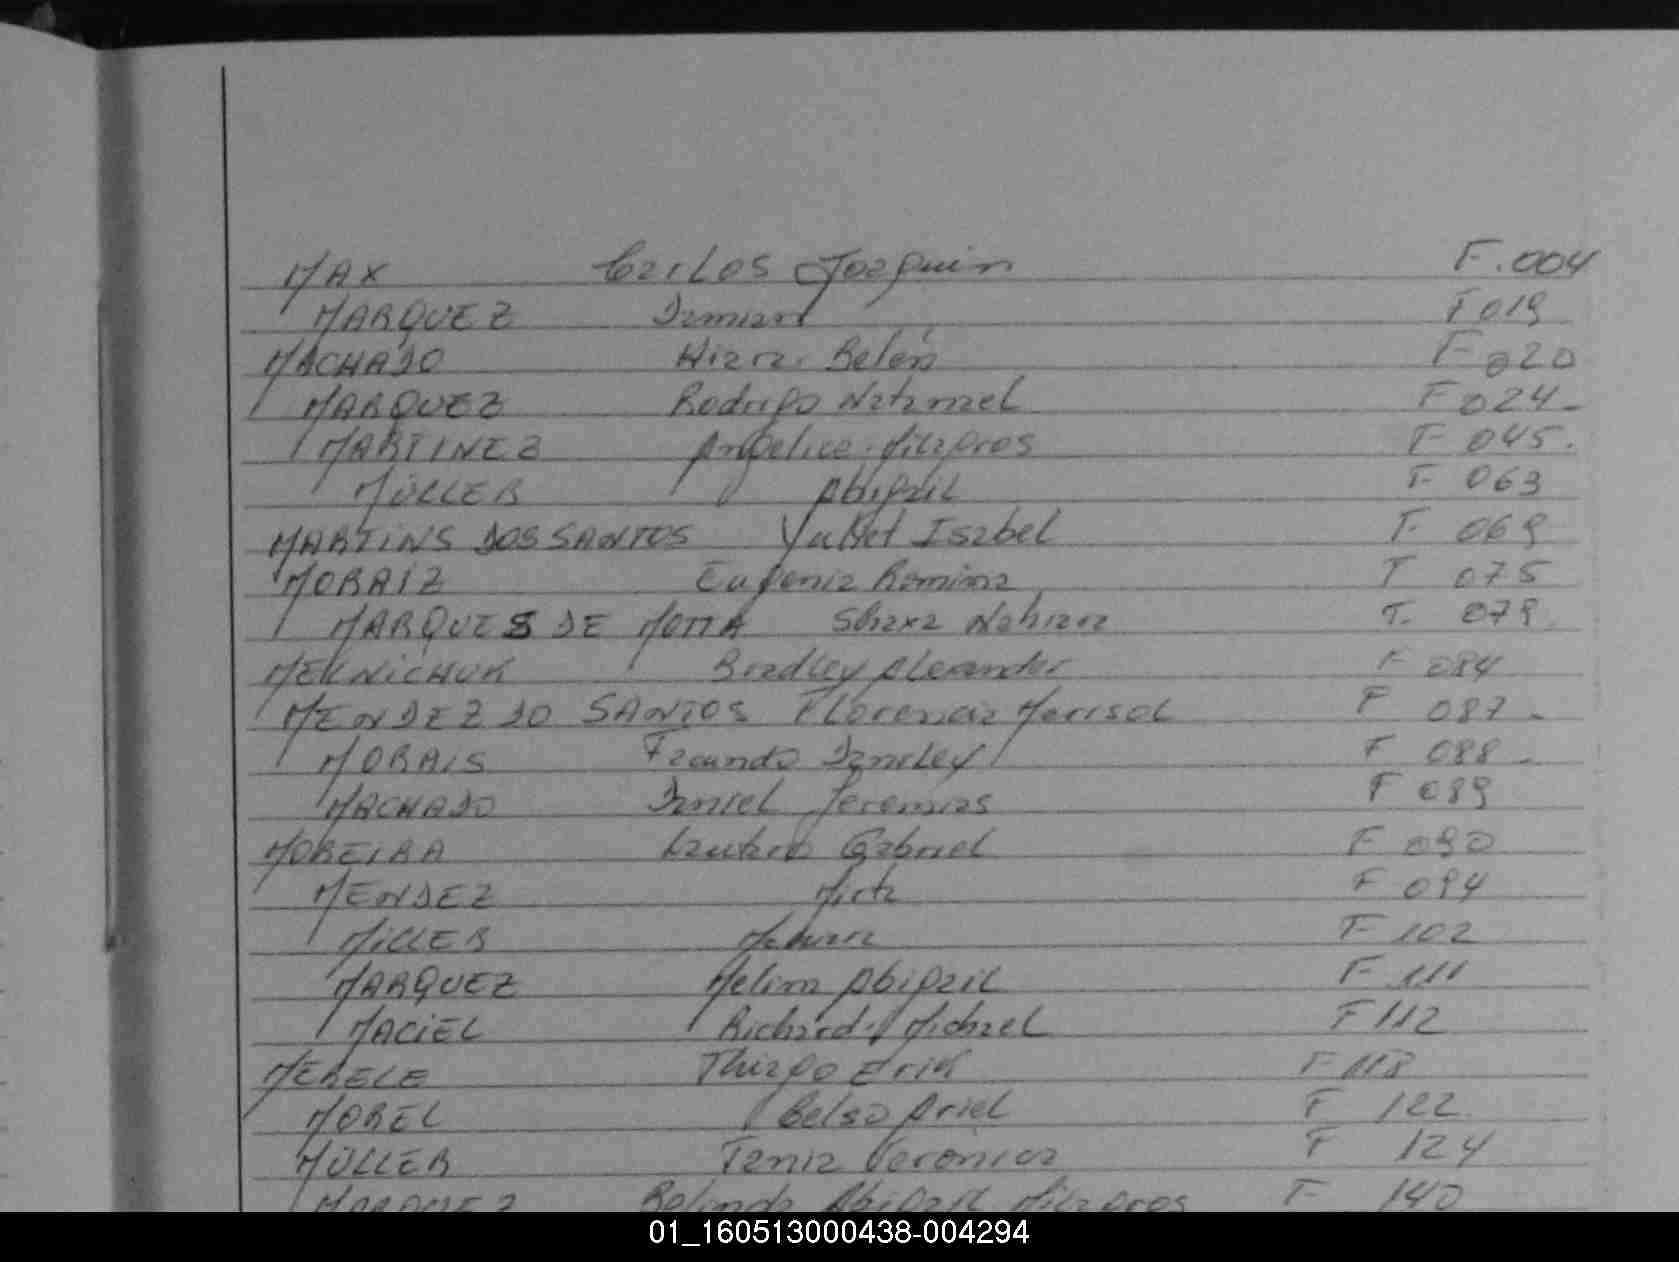 MAX Carlos Joaquin F.004
MARQUEZ Damian F 019
MACHADO Hiara Belén F 020
MARQUEZ Rodrigo Natanael F 024-
MARTINEZ Angelica Milagros F 045.
MÜLLER Abigail F 063
MARTINS DOS SANTOS Isabel F 069
MORAIZ Eugenia Romina F 075
MARQUES DE MOTTA Nahiara F. 079.
MELNICHUK Bradley Alexander F 084
MENDEZ DO SANTOS Florencia Marisol F 087-
MORAIS Facundo F 088-
MACHADO Daniel Jeremias F 089
MOREIRA Lautaro Gabriel F 090
MENDEZ Mirta F 094
MILLER F 102
MARQUEZ Melina Abigail F 111
MACIEL Richard Michael F 112
MERELE Thiago Erik F 118
MOREL Celso Ariel F 122
MÜLLER Tania Veronica F 124
MARQUEZ Abigail Milagros F 140
01_160513000438-004294